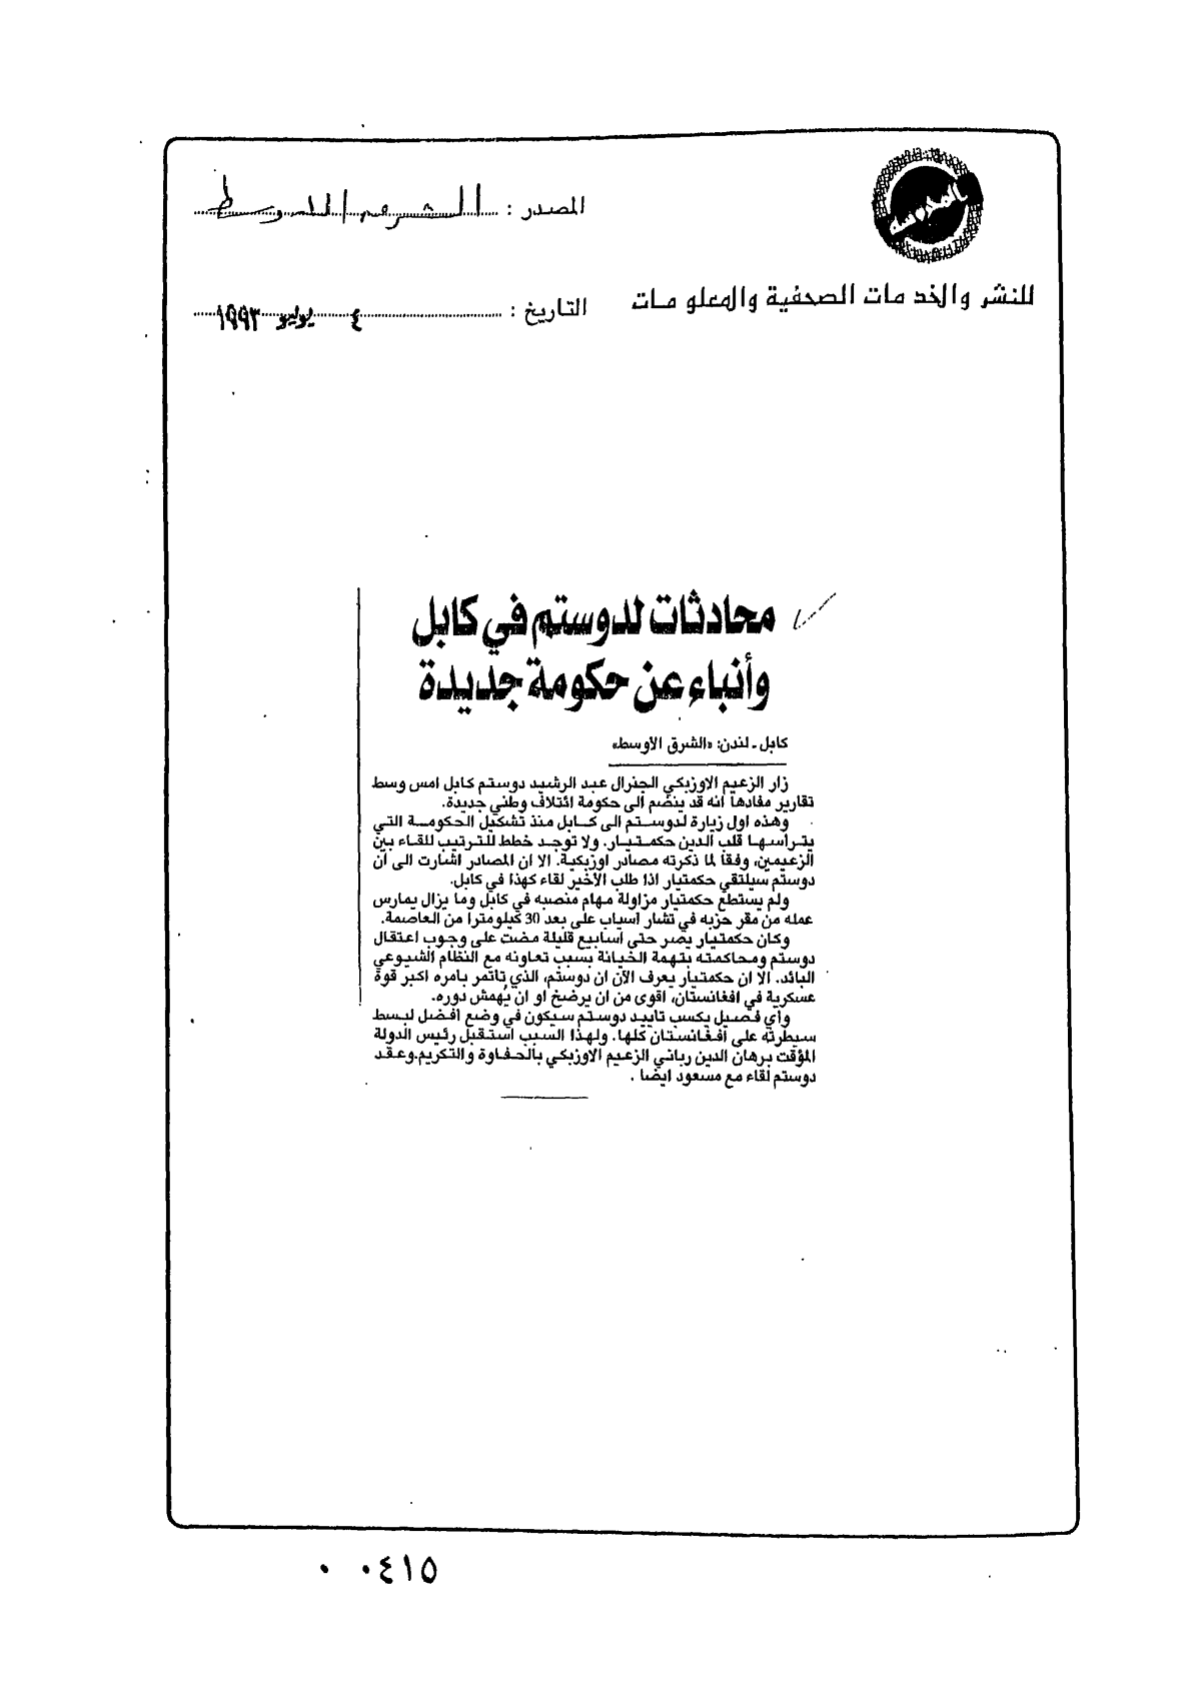 المصدر : الشرق الاوسط
للنشر والخدمات الصحفية والمعلومات
التاريخ : ٤ يوليو ١٩٩٣
محادثات لدوستم في كابل
وأنباء عن حكومة جديدة
كابل ـ لندن: «الشرق الأوسط»
زار الزعيم الاوزبكي الجنرال عبد الرشيد دوستم كابل امس وسط
تقارير مفادها انه قد ينضم الى حكومة ائتلاف وطني جديدة.
وهذه اول زيارة لدوستم الى كابل منذ تشكيل الحكومة التي
يترأسها قلب الدين حكمتيار. ولا توجد خطط للترتيب للقاء بين
الزعيمين، وفقا لما ذكرته مصادر اوزبكية. الا ان المصادر اشارت الى أن
دوستم سيلتقي حكمتيار اذا طلب الأخير لقاء كهذا في كابل.
ولم يستطع حكمتيار مزاولة مهام منصبه في كابل وما يزال يمارس
عمله من مقر حزبه في تشار اسياب على بعد 30 كيلومترا من العاصمة.
وكان حكمتيار يصر حتى أسابيع قليلة مضت على وجوب اعتقال
دوستم ومحاكمته بتهمة الخيانة بسبب تعاونه مع النظام الشيوعي
البائد. الا ان حكمتيار يعرف الآن ان دوستم، الذي تأتمر بامره اكبر قوة
عسكرية في افغانستان، اقوى من ان يرضخ او ان يُهمش دوره.
وأي فصيل يكسب تأييد دوستم سيكون في وضع افضل لبسط
سيطرته على افغانستان كلها. ولهذا السبب استقبل رئيس الدولة
المؤقت برهان الدين رباني الزعيم الاوزبكي بالحفاوة والتكريم.وعقد
دوستم لقاء مع مسعود ايضا .
٠ ٠٤١٥